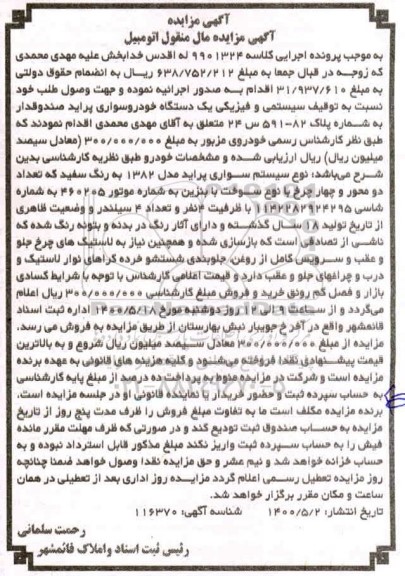 آگهی مزایده
آگهی مزایده مال منقول اتومبیل
به موجب پرونده اجرایی کلاسه ۹۹۰۱۳۲۴ له اقدس خدابخش علیه مهدی محمدی
که زوجه در قبال جمعا به مبلغ ۶۳۸/۷۵۲/۲۱۲ ریال به انضمام حقوق دولتی
به مبلغ ۳۱/۹۳۷/۶۱۰ اقدام به صدور اجرائیه نموده و جهت وصول طلب خود
نسبت به توقیف سیستمی و فیزیکی یک دستگاه خودروسواری پراید صندوقدار
به شماره پلاک ۸۲-۵۹۱ س ۲۴ متعلق به آقای مهدی محمدی اقدام نمودند که
طبق نظر کارشناس رسمی خودروی مزبور به مبلغ ۳۰۰/۰۰۰/۰۰۰ (معادل سیصد
میلیون ریال) ریال ارزیابی شده و مشخصات خودرو طبق نظریه کارشناسی بدین
شرح می‌باشد: نوع سیستم سواری پراید مدل ۱۳۸۲ به رنگ سفید که تعداد
دو محور و چهار چرخ با نوع سوخت با بنزین به شماره موتور ۴۶۰۲۰۵ به شماره
شاسی ۱۴۱۲۲۸۲۹۴۲۹۵ با ظرفیت ۴نفر و تعداد ۴ سیلندر و وضعیت ظاهری
از تاریخ تولید ۱۸سال گذشته و دارای آثار رنگ در بدنه و بتونه رنگ شده که
ناشی از تصادفی است که بازسازی شده و همچنین نیاز به لاستیک های چرخ جلو
و عقب و سرویس کامل از روغن جلوبندی شستشو خرده کراهای نوار لاستیک و
درب و چراغهای جلو و عقب دارد و قیمت اعلامی کارشناس با توجه با شرایط کسادی
بازار و فصل کم رونق خرید و فروش مبلغ کارشناسی ۳۰۰/۰۰۰/۰۰۰ ریال اعلام
می‌گردد و از ساعت ۹ الی ۱۲ روز دوشنبه مورخ ۱۴۰۰/۵/۱۸ اداره ثبت اسناد
قائمشهر واقع در آخرخ جویبار نبش بهارستان از طریق مزایده به فروش می رسد.
مزایده از مبلغ ۳۰۰/۰۰۰/۰۰۰ معادل سیصد میلیون ریال شروع و به بالاترین
قیمت پیشنهادی نقدا فروخته می‌شود و کلیه هزینه های قانونی به عهده برنده
مزایده است و شرکت در مزایده منوط به پرداخت ده درصد از مبلغ پایه کارشناسی
به حساب سپرده ثبت و حضور خریدار یا نماینده قانونی او در جلسه مزایده است.
برنده مزایده مکلف است ما به تفاوت مبلغ فروش را ظرف مدت پنج روز از تاریخ
مزایده به حساب صندوق ثبت تودیع کند و در صورتی که ظرف مهلت مقرر مانده
فیش را به حساب سپرده ثبت واریز نکند مبلغ مذکور قابل استرداد نبوده و به
حساب خزانه خواهد شد و نیم عشر و حق مزایده نقدا وصول خواهد ضمنا چنانچه
روز مزایده تعطیل رسمی اعلام گردد مزایده روز اداری بعد از تعطیلی در همان
ساعت و مکان مقرر برگزار خواهد شد.
تاریخ انتشار: ۱۴۰۰/۵/۲ شناسه آگهی: ۱۱۶۳۷۰
رحمت سلمانی
رئیس ثبت اسناد و املاک قائمشهر